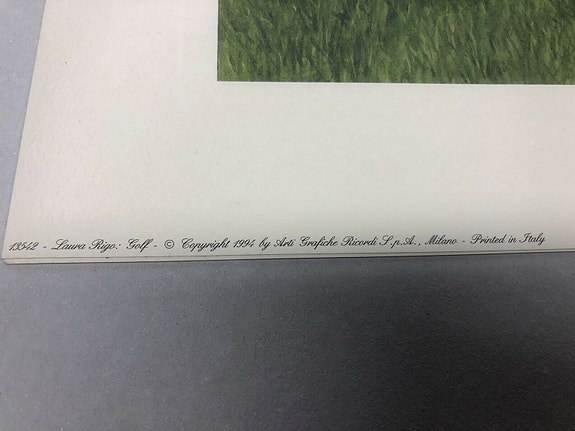 13542 - Laura Rigo: Golf - © Copyright 1994 by Arti Grafiche Ricordi S.p.A., Milano - Printed in Italy